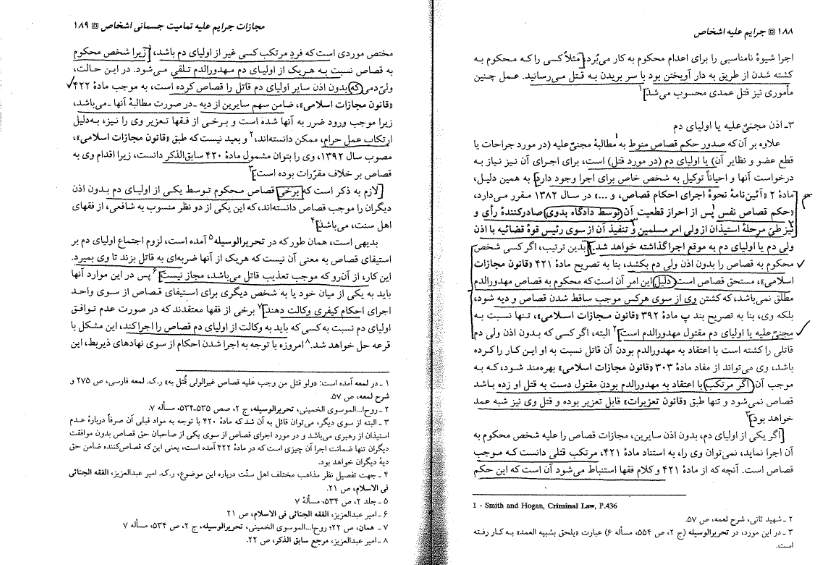 ۱۸۸ جرایم علیه اشخاص
اجرا شیوهٔ نامناسبی را برای اعدام محکوم به کار می‌بُرد، مثلاً کسی را که محکوم به
کشته شدن از طریق به دار آویختن بود با سر بریدن به قتل می‌رسانید. عمل چنین
مأموری نیز قتل عمدی محسوب می‌شد.۱
۳ـ اذن مجنیٌ علیه یا اولیای دم
علاوه بر آن که صدور حکم قصاص منوط به مطالبهٔ مجنیٌ علیه (در مورد جراحات یا
قطع عضو و نظایر آن) یا اولیای دم (در مورد قتل) است، برای اجرای آن نیز نیاز به
درخواست آنها و احیاناً توکیل به شخص خاص برای اجرا وجود دارد. به همین دلیل،
مادهٔ ۲ «آئین‌نامهٔ نحوهٔ اجرای احکام قصاص، و ...» در سال ۱۳۸۲ مقرر می‌دارد،
«حکم قصاص نفس پس از احراز قطعیت آن توسط دادگاه بدوی صادرکنندهٔ رأی و
نیز طیّ مرحلهٔ استیذان از ولی امر مسلمین و تنفیذ آن از سوی رئیس قوهٔ قضائیه با اذن
ولی دم یا اولیای دم به موقع اجرا گذاشته خواهد شد.» بدین ترتیب، اگر کسی شخص
محکوم به قصاص را بدون اذن ولی دم بکشد، بنا به تصریح مادهٔ ۴۲۱ «قانون مجازات
اسلامی»، مستحق قصاص است. دلیل این امر آن است که محکوم به قصاص مهدورالدم
مطلق نمی‌باشد، که کشتن وی از سوی هرکس موجب ساقط شدن قصاص و دیه شود،
بلکه وی، بنا به تصریح بند پ مادهٔ ۳۹۲ «قانون مجازات اسلامی»، تنها نسبت به
مجنیٌ علیه یا اولیای دم مقتول مهدورالدم است.۲ البته، اگر کسی که بدون اذن ولی دم
قاتلی را کشته است با اعتقاد به مهدورالدم بودن آن قاتل نسبت به او این کار را کرده
باشد، وی می‌تواند از مفاد مادهٔ ۳۰۳ «قانون مجازات اسلامی» بهره‌مند شود، که به
موجب آن اگر مرتکب با اعتقاد به مهدورالدم بودن مقتول دست به قتل او زده باشد
قصاص نمی‌شود و تنها طبق «قانون تعزیرات» قابل تعزیر بوده و قتل وی نیز شبه عمد
خواهد بود.۳
اگر یکی از اولیای دم، بدون اذن سایرین، مجازات قصاص را علیه شخص محکوم به
آن اجرا نماید، نمی‌توان وی را، به استناد مادهٔ ۴۲۱، مرتکب قتلی دانست که موجب
قصاص است. آنچه که از مادهٔ ۴۲۱ و کلام فقها استنباط می‌شود آن است که این حکم
1 - Smith and Hogan, Criminal Law, P.436
۲ ـ شهید ثانی، شرح لمعه، ص ۵۷.
۳ ـ در این مورد، در تحریرالوسیله (ج ۲، ص ۵۵۴، مسأله ۶) عبارت «یلحق بشبیه العمد» به کار رفته
است.
مجازات جرایم علیه تمامیت جسمانی اشخاص ۱۸۹
مختص موردی است که فرد مرتکب کسی غیر از اولیای دم باشد، زیرا شخص محکوم
به قصاص نسبت به هریک از اولیای دم مهدورالدم تلقی می‌شود. در این حالت،
ولیّ دمی که بدون اذن سایر اولیای دم قاتل را قصاص کرده است، به موجب مادهٔ ۴۲۲
«قانون مجازات اسلامی»، ضامن سهم سایرین از دیه ـ در صورت مطالبهٔ آنها ـ می‌باشد،
زیرا موجب ورود ضرر به آنها شده است و برخی از فقها تعزیر وی را نیز، به‌دلیل
ارتکاب عمل حرام، ممکن دانسته‌اند،۲ و بعید نیست که طبق «قانون مجازات اسلامی»،
مصوب سال ۱۳۹۲، وی را بتوان مشمول مادهٔ ۴۲۰ سابق‌الذکر دانست، زیرا اقدام وی به
قصاص بر خلاف مقرّرات بوده است.۳
لازم به ذکر است که برخی قصاص محکوم توسط یکی از اولیای دم بدون اذن
دیگران را موجب قصاص دانسته‌اند، که این یکی از دو نظر منسوب به شافعی، از فقهای
اهل سنت، می‌باشد.۴
بدیهی است، همان طور که در تحریرالوسیله۵ آمده است، لزوم اجتماع اولیای دم بر
استیفای قصاص به معنی آن نیست که هریک از آنها ضربه‌ای به قاتل بزند تا وی بمیرد.
این کار، از آن‌رو که موجب تعذیب قاتل می‌باشد، مجاز نیست.۶ پس در این موارد آنها
باید به یکی از میان خود یا به شخص دیگری برای استیفای قصاص از سوی واحد
اجرای احکام کیفری وکالت دهند.۷ برخی از فقها معتقدند که در صورت عدم توافق
اولیای دم نسبت به کسی که باید به وکالت از اولیای دم قصاص را اجرا کند، این مشکل با
قرعه حل خواهد شد.۸ امروزه با توجه به اجرا شدن احکام از سوی نهادهای ذیربط، این
۱ ـ در لمعه آمده است: «ولو قتل من وجب علیه قصاص غیرالولی قُتل به» ر.ک. لمعه فارسی، ص ۲۷۵ و
شرح لمعه، ص ۵۷.
۲ ـ روح‌ا... الموسوی الخمینی، تحریرالوسیله، ج ۲، صص ۵۳۵ـ۵۳۴، مسأله ۷.
۳ ـ البته از سوی دیگر، می‌توان قائل به آن شد که مادهٔ ۴۲۰ با توجه به مواد قبلی آن صرفاً دربارهٔ عدم
استیذان از رهبری می‌باشد و در مورد اجرای قصاص از سوی یکی از صاحبان حق قصاص بدون موافقت
دیگران تنها ضمانت اجرا آن چیزی است که در مادهٔ ۴۲۲ آمده است، یعنی این که قصاص‌کننده ضامن حق
دیهٔ دیگران خواهد بود.
۴ ـ جهت تفصیل نظر مذاهب مختلف اهل سنّت درباره این موضوع، ر.ک. امیر عبدالعزیز، الفقه الجنائی
فی الاسلام، ص ۲۱.
۵ ـ جلد ۲، ص ۵۳۴، مسألهٔ ۷
۶ ـ امیر عبدالعزیز، الفقه الجنائی فی الاسلام، ص ۲۱
۷ ـ همان، ص ۲۲؛ روح‌ا... الموسوی الخمینی، تحریرالوسیله، ج ۲، ص ۵۳۴، مسأله ۷
۸ ـ امیر عبدالعزیز، مرجع سابق الذکر، ص ۲۲.